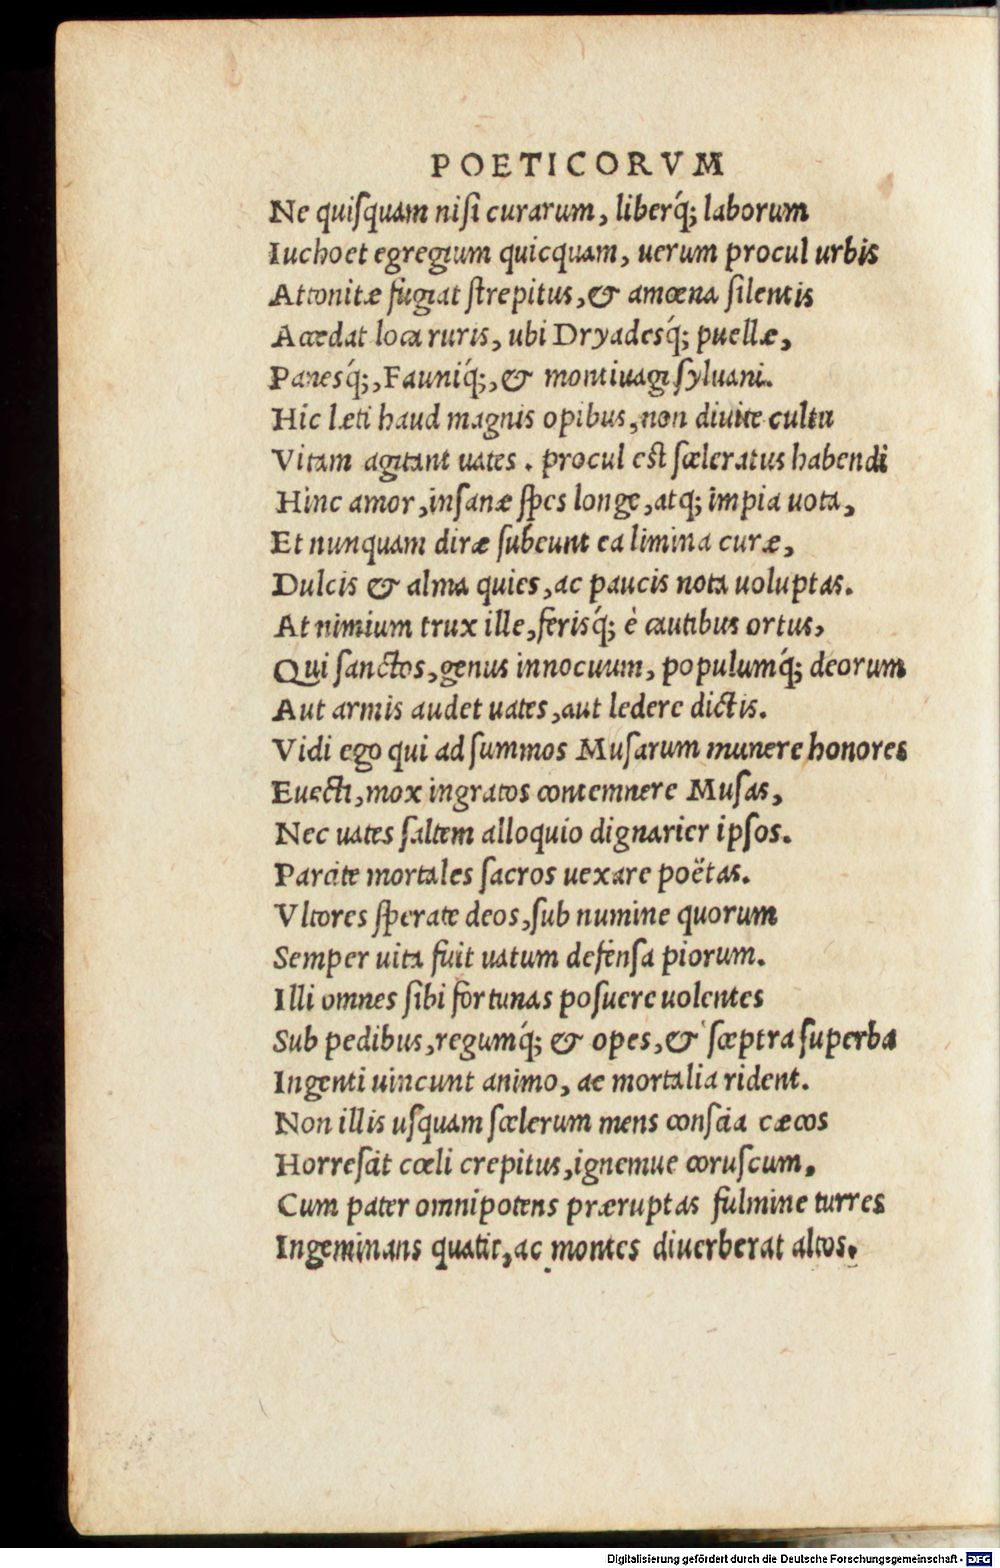 POETICORVM
Ne quiſquam niſi curarum, liberq́; laborum
Iuchoet egregium quicquam, uerum procul urbis
Attonitæ fugiat ſtrepitus, & amœna ſilentis
Accedat loca ruris, ubi Dryadesq́; puellæ,
Panesq́;, Fauniq́;, & montiuagi ſyluani.
Hic læti haud magnis opibus, non diuite cultu
Vitam agitant uates. procul est ſceleratus habendi
Hinc amor, inſanæ ſpes longe, atq; impia uota,
Et nunquam diræ ſubeunt ea limina curæ,
Dulcis & alma quies, ac paucis nota uoluptas.
At nimium trux ille, ferisq́; è cautibus ortus,
Qui ſanctos, genus innocuum, populumq́; deorum
Aut armis audet uates, aut ledere dictis.
Vidi ego qui ad ſummos Muſarum munere honores
Euecti, mox ingratos contemnere Muſas,
Nec uates ſaltem alloquio dignarier ipſos.
Parcite mortales ſacros uexare poëtas.
Vltores ſperate deos, ſub numine quorum
Semper uita fuit uatum defenſa piorum.
Illi omnes ſibi fortunas poſuere uolentes
Sub pedibus, regumq́; & opes, & ſceptra ſuperba
Ingenti uincunt animo, ac mortalia rident.
Non illis uſquam ſcelerum mens conſcia cæcos
Horreſcit cœli crepitus, ignemue coruſcum,
Cum pater omnipotens præruptas fulmine turres
Ingeminans quatit, ac montes diuerberat altos.
Digitalisierung gefördert durch die Deutsche Forschungsgemeinschaft - DFG